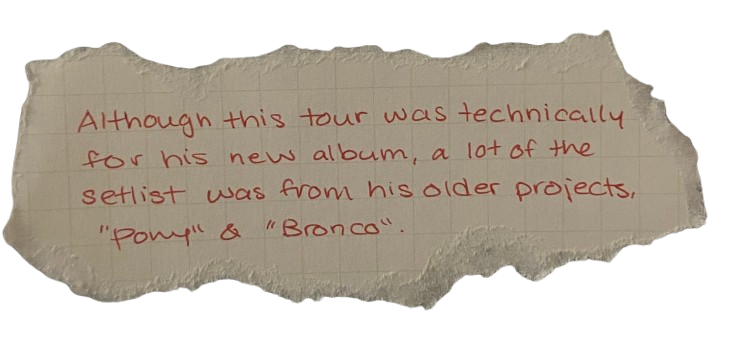 Although this tour was technically
for his new album, a lot of the
setlist was from his older projects,
"Pony" & "Bronco".